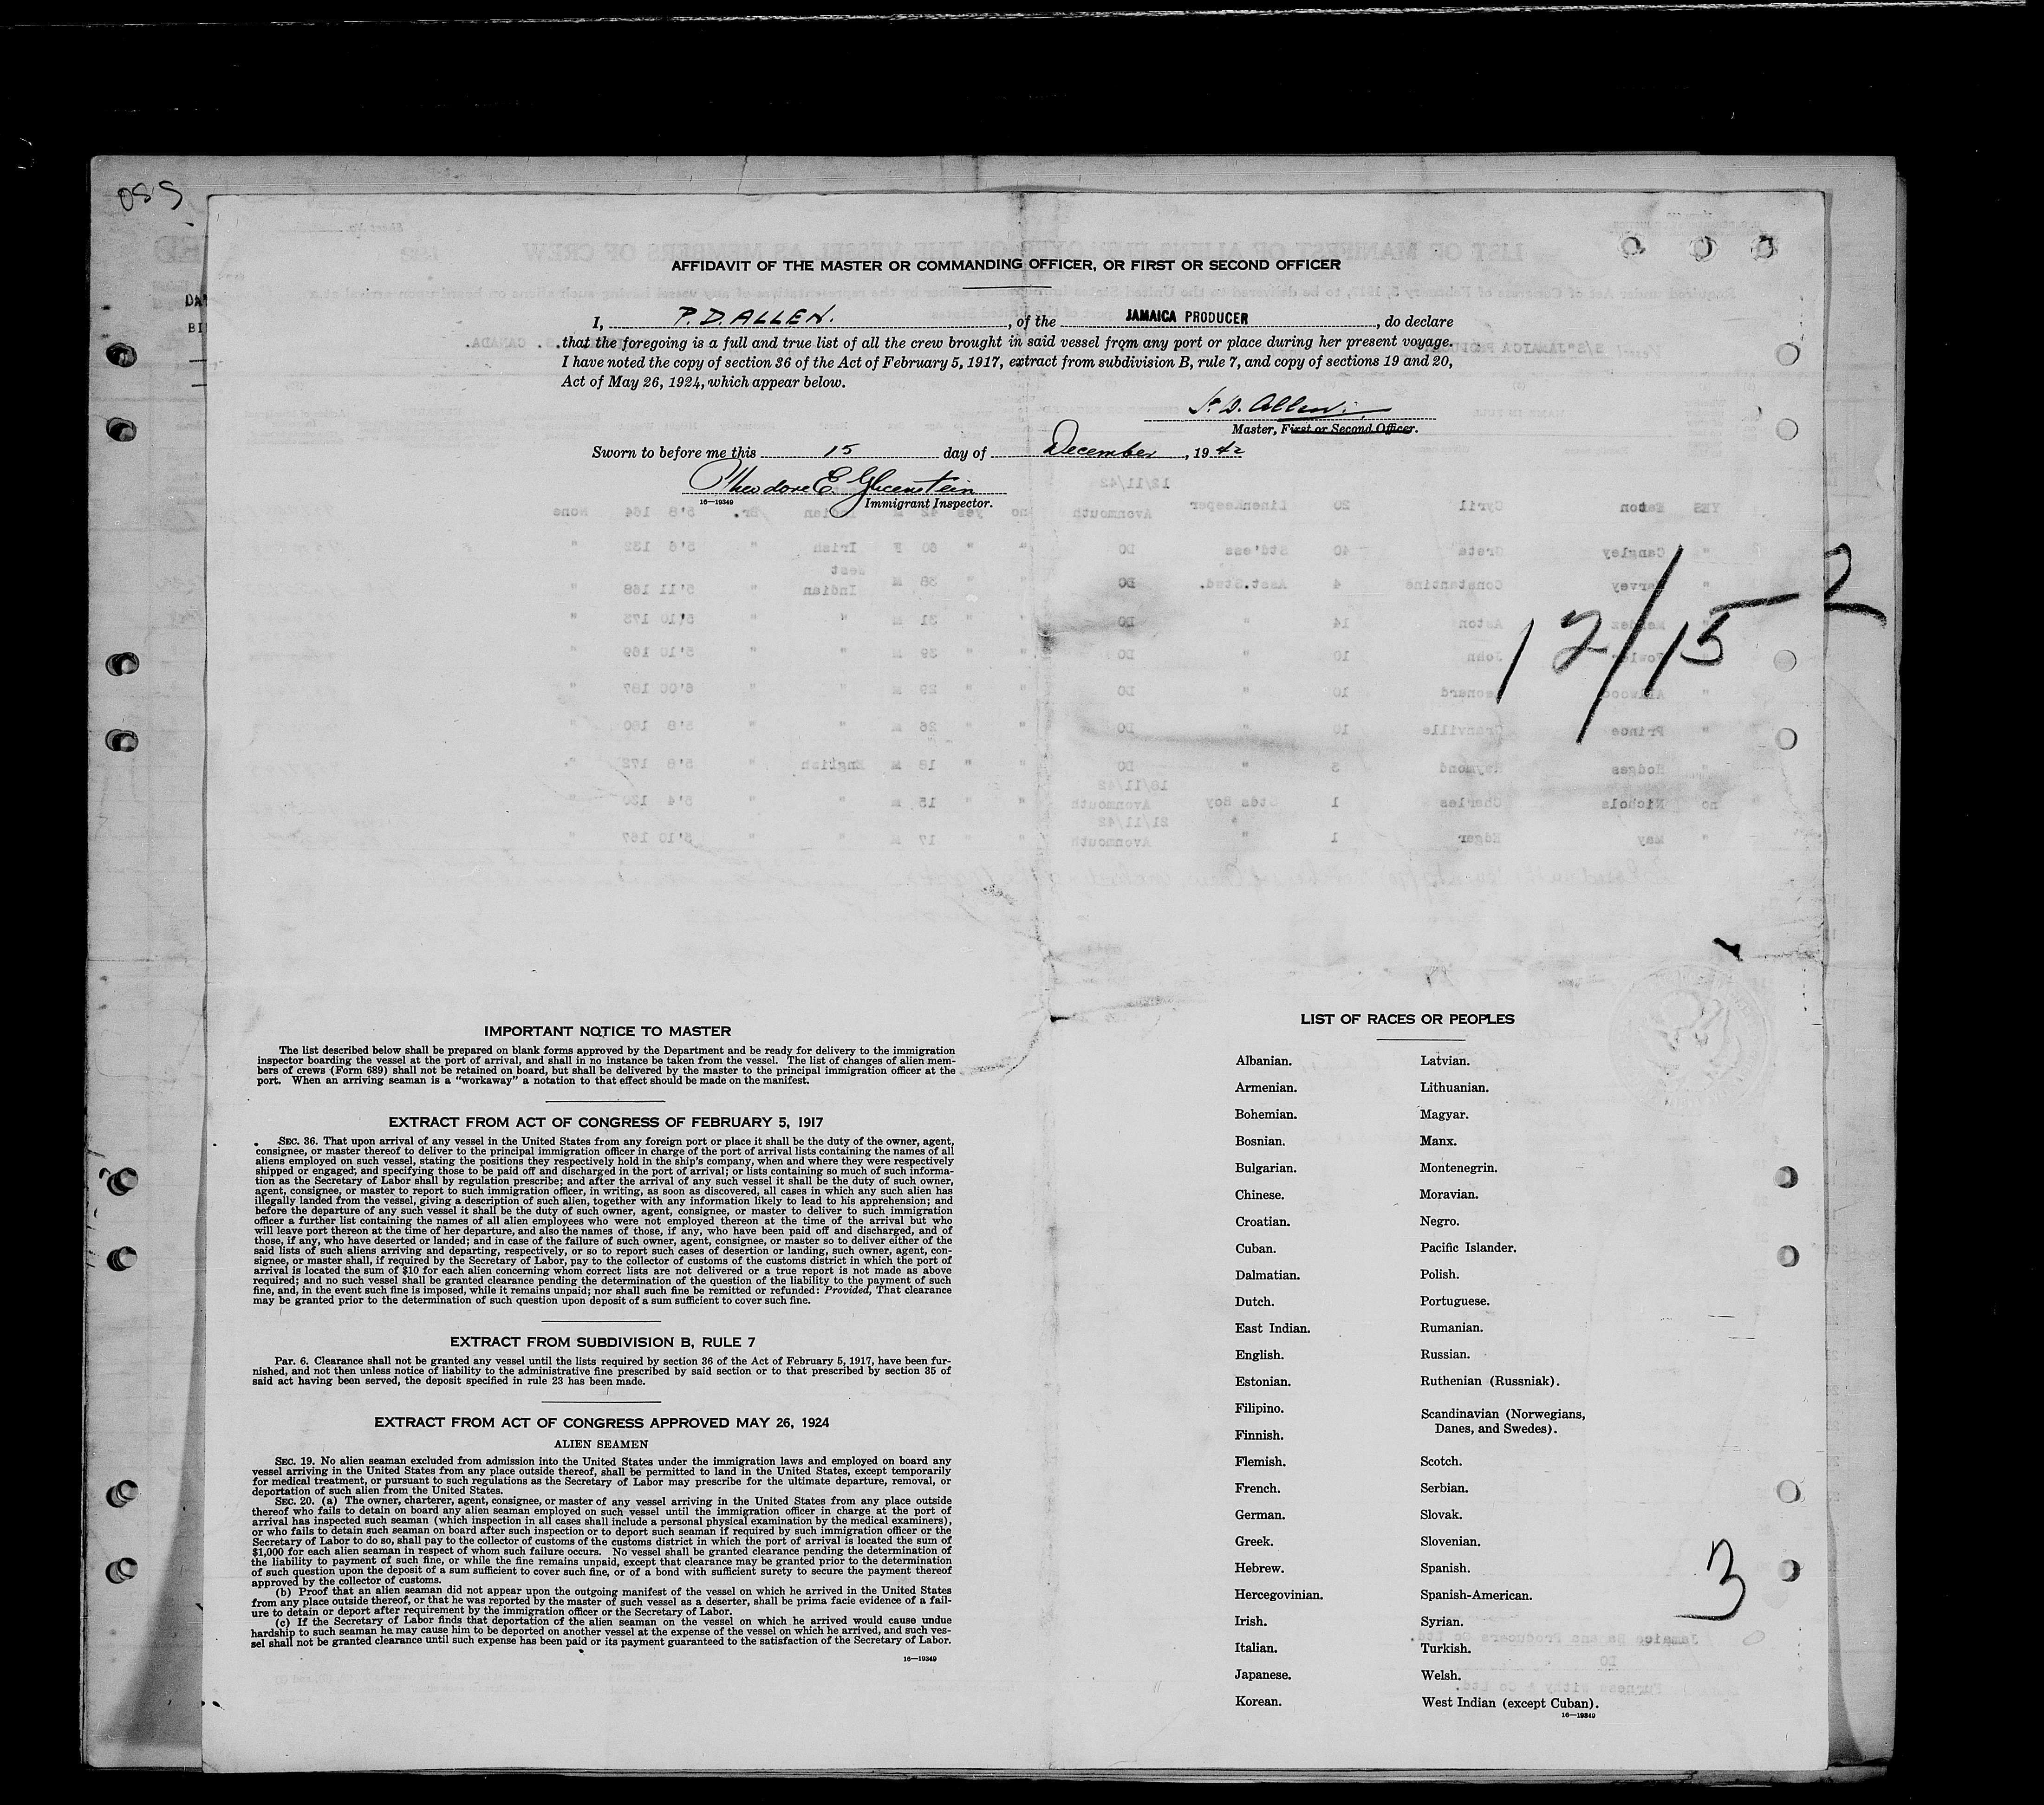 AFFIDAVIT OF THE MASTER OR COMMANDING OFFICER, OR FIRST OR SECOND OFFICER
I, P. D. ALLEN. , of the JAMAICA PRODUCER , do declare
that the foregoing is a full and true list of all the crew brought in said vessel from any port or place during her present voyage.
I have noted the copy of section 36 of the Act of February 5, 1917, extract from subdivision B, rule 7, and copy of sections 19 and 20,
Act of May 26, 1924, which appear below.
P. D. Allen.
Master, First or Second Officer.
Sworn to before me this 15 day of December , 19 42
Theodore E.
16—19349 Immigrant Inspector.
12/15
2
IMPORTANT NOTICE TO MASTER
The list described below shall be prepared on blank forms approved by the Department and be ready for delivery to the immigration
inspector boarding the vessel at the port of arrival, and shall in no instance be taken from the vessel. The list of changes of alien mem-
bers of crews (Form 689) shall not be retained on board, but shall be delivered by the master to the principal immigration officer at the
port. When an arriving seaman is a "workaway" a notation to that effect should be made on the manifest.
EXTRACT FROM ACT OF CONGRESS OF FEBRUARY 5, 1917
SEC. 36. That upon arrival of any vessel in the United States from any foreign port or place it shall be the duty of the owner, agent,
consignee, or master thereof to deliver to the principal immigration officer in charge of the port of arrival lists containing the names of all
aliens employed on such vessel, stating the positions they respectively hold in the ship's company, when and where they were respectively
shipped or engaged, and specifying those to be paid off and discharged in the port of arrival; or lists containing so much of such informa-
tion as the Secretary of Labor shall by regulation prescribe; and after the arrival of any such vessel it shall be the duty of such owner,
agent, consignee, or master to report to such immigration officer, in writing, as soon as discovered, all cases in which any such alien has
illegally landed from the vessel, giving a description of such alien, together with any information likely to lead to his apprehension; and
before the departure of any such vessel it shall be the duty of such owner, agent, consignee, or master to deliver to such immigration
officer a further list containing the names of all alien employees who were not employed thereon at the time of the arrival but who
will leave port thereon at the time of her departure, and also the names of those, if any, who have been paid off and discharged, and of
those, if any, who have deserted or landed; and in case of the failure of such owner, agent, consignee, or master so to deliver either of the
said lists of such aliens arriving and departing, respectively, or so to report such cases of desertion or landing, such owner, agent, con-
signee, or master shall, if required by the Secretary of Labor, pay to the collector of customs of the customs district in which the port of
arrival is located the sum of $10 for each alien concerning whom correct lists are not delivered or a true report is not made as above
required; and no such vessel shall be granted clearance pending the determination of the question of the liability to the payment of such
fine, and, in the event such fine is imposed, while it remains unpaid; nor shall such fine be remitted or refunded: Provided, That clearance
may be granted prior to the determination of such question upon deposit of a sum sufficient to cover such fine.
EXTRACT FROM SUBDIVISION B, RULE 7
Par. 6. Clearance shall not be granted any vessel until the lists required by section 36 of the Act of February 5, 1917, have been fur-
nished, and not then unless notice of liability to the administrative fine prescribed by said section or to that prescribed by section 35 of
said act having been served, the deposit specified in rule 23 has been made.
EXTRACT FROM ACT OF CONGRESS APPROVED MAY 26, 1924
ALIEN SEAMEN
SEC. 19. No alien seaman excluded from admission into the United States under the immigration laws and employed on board any
vessel arriving in the United States from any place outside thereof, shall be permitted to land in the United States, except temporarily
for medical treatment, or pursuant to such regulations as the Secretary of Labor may prescribe for the ultimate departure, removal, or
deportation of such alien from the United States.
SEC. 20. (a) The owner, charterer, agent, consignee, or master of any vessel arriving in the United States from any place outside
thereof who fails to detain on board any alien seaman employed on such vessel until the immigration officer in charge at the port of
arrival has inspected such seaman (which inspection in all cases shall include a personal physical examination by the medical examiners),
or who fails to detain such seaman on board after such inspection or to deport such seaman if required by such immigration officer or the
Secretary of Labor to do so, shall pay to the collector of customs of the customs district in which the port of arrival is located the sum of
$1,000 for each alien seaman in respect of whom such failure occurs. No vessel shall be granted clearance pending the determination of
the liability to payment of such fine, or while the fine remains unpaid, except that clearance may be granted prior to the determination
of such question upon the deposit of a sum sufficient to cover such fine, or of a bond with sufficient surety to secure the payment thereof
approved by the collector of customs.
(b) Proof that an alien seaman did not appear upon the outgoing manifest of the vessel on which he arrived in the United States
from any place outside thereof, or that he was reported by the master of such vessel as a deserter, shall be prima facie evidence of a fail-
ure to detain or deport after requirement by the immigration officer or the Secretary of Labor.
(c) If the Secretary of Labor finds that deportation of the alien seaman on the vessel on which he arrived would cause undue
hardship to such seaman he may cause him to be deported on another vessel at the expense of the vessel on which he arrived, and such ves-
sel shall not be granted clearance until such expense has been paid or its payment guaranteed to the satisfaction of the Secretary of Labor.
16—19349
LIST OF RACES OR PEOPLES
Albanian.
Armenian.
Bohemian.
Bosnian.
Bulgarian.
Chinese.
Croatian.
Cuban.
Dalmatian.
Dutch.
East Indian.
English.
Estonian.
Filipino.
Finnish.
Flemish.
French.
German.
Greek.
Hebrew.
Hercegovinian.
Irish.
Italian.
Japanese.
Korean.
Latvian.
Lithuanian.
Magyar.
Manx.
Montenegrin.
Moravian.
Negro.
Pacific Islander.
Polish.
Portuguese.
Rumanian.
Russian.
Ruthenian (Russniak).
Scandinavian (Norwegians,
Danes, and Swedes).
Scotch.
Serbian.
Slovak.
Slovenian.
Spanish.
Spanish-American.
Syrian.
Turkish.
Welsh.
West Indian (except Cuban).
16—19349
3